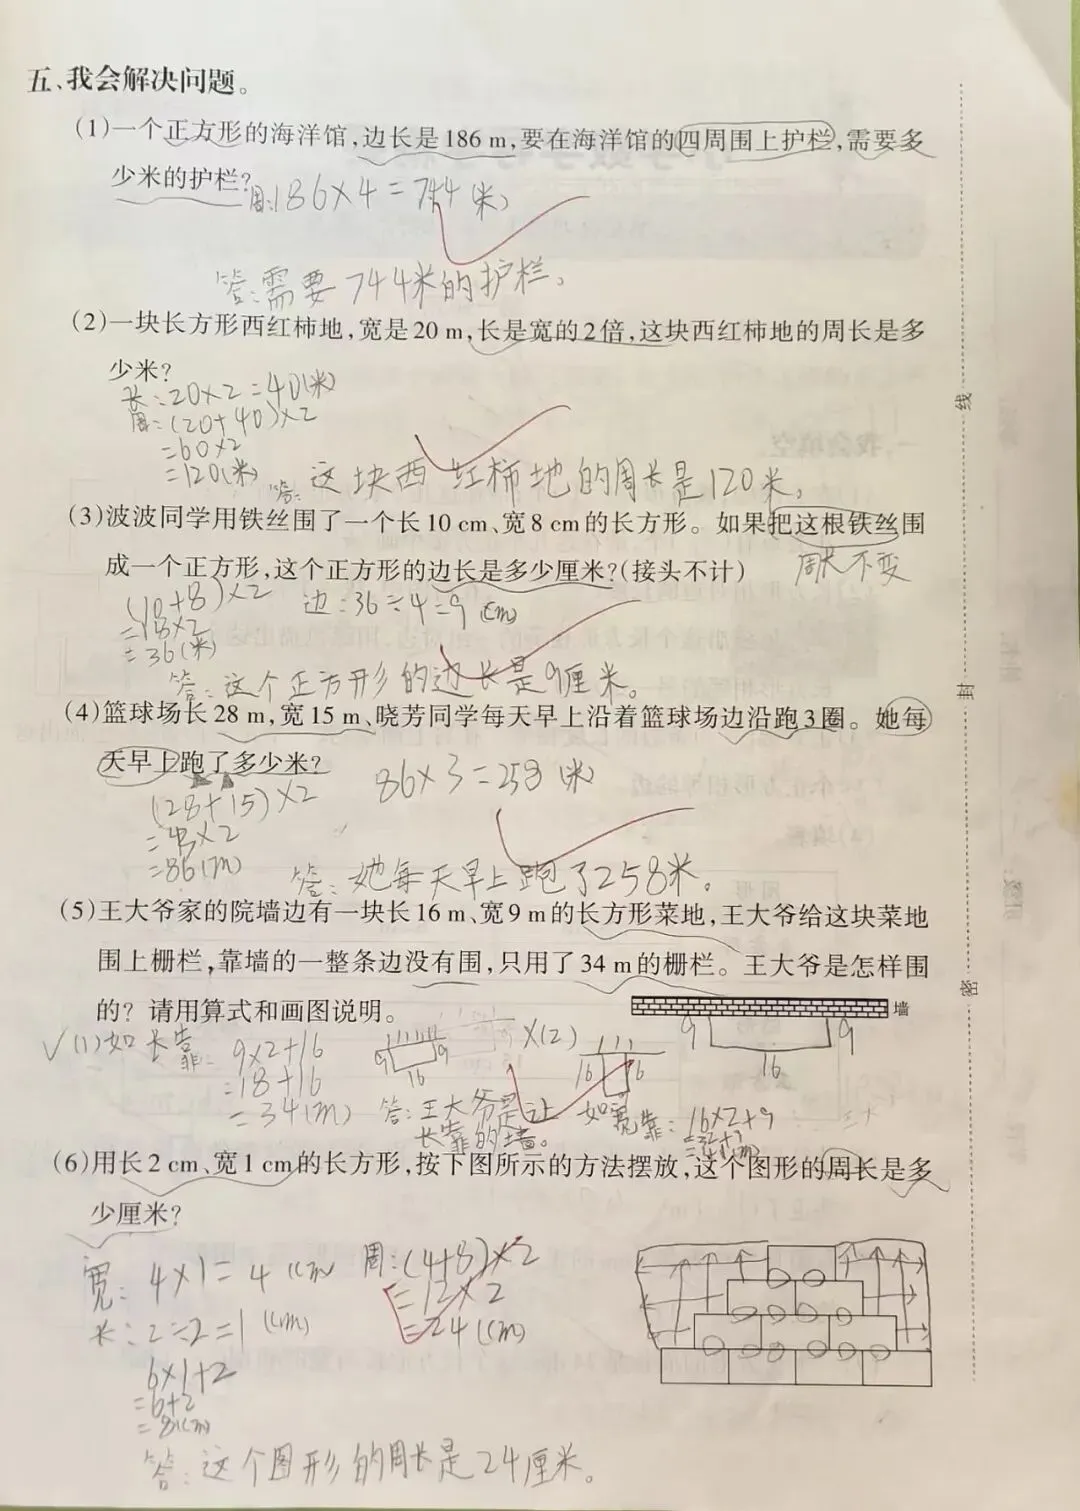 五、我会解决问题。
(1)一个正方形的海洋馆,边长是186 m,要在海洋馆的四周围上护栏,需要多
少米的护栏?
周:186×4=744(米)
答:需要744米的护栏。
(2)一块长方形西红柿地,宽是20 m,长是宽的2倍,这块西红柿地的周长是多
少米?
长:20×2=40(米)
周:(20+40)×2
=60×2
=120(米)
答:这块西红柿地的周长是120米。
(3)波波同学用铁丝围了一个长10 cm、宽8 cm的长方形。如果把这根铁丝围
成一个正方形,这个正方形的边长是多少厘米?(接头不计)
周长不变
(10+8)×2
=18×2
=36(米)
边:36÷4=9(cm)
答:这个正方形的边长是9厘米。
(4)篮球场长28 m,宽15 m、晓芳同学每天早上沿着篮球场边沿跑3圈。她每
天早上跑了多少米?
(28+15)×2
=43×2
=86(m)
86×3=258(米)
答:她每天早上跑了258米。
(5)王大爷家的院墙边有一块长16 m、宽9 m的长方形菜地,王大爷给这块菜地
围上栅栏,靠墙的一整条边没有围,只用了34 m的栅栏。王大爷是怎样围
的?请用算式和画图说明。
墙
9
9
16
(1)如长靠:
9×2+16
=18+16
=34(m)
9
9
16
×(2)
16
16
答:王大爷是让
长靠的墙。
如宽靠:16×2+9
=32+9
(6)用长2 cm、宽1 cm的长方形,按下图所示的方法摆放,这个图形的周长是多
少厘米?
宽:4×1=4(cm)
长:2÷2=1(cm)
6×1+2
=6+2
=8(cm)
周:(4+8)×2
=12×2
=24(cm)
答:这个图形的周长是24厘米。
线
封
密